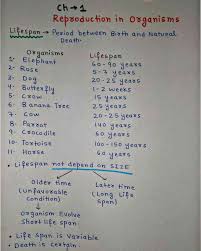 Ch → 1
Reproduction in Organisms
Lifespan → Period between Birth and Natural
Death.
Organisms Lifespan
1. Elephant 60-90 years
2. Rose 5-7 years
3. Dog 20-25 years
4. Butterfly 1-2 weeks
5. Crow 15 years
6. Banana Tree 25 years
7. Cow 20-25 years
8. Parrot 140 years
9. Crocodile 60 years
10. Tortoise 100-150 years
11. Horse 60 years
• Lifespan not depend on SIZE
Older time Later time
(Unfavorable (Long life
condition) span)
Organism Evolve
Short life span
• Life span is Variable
• Death is certain.